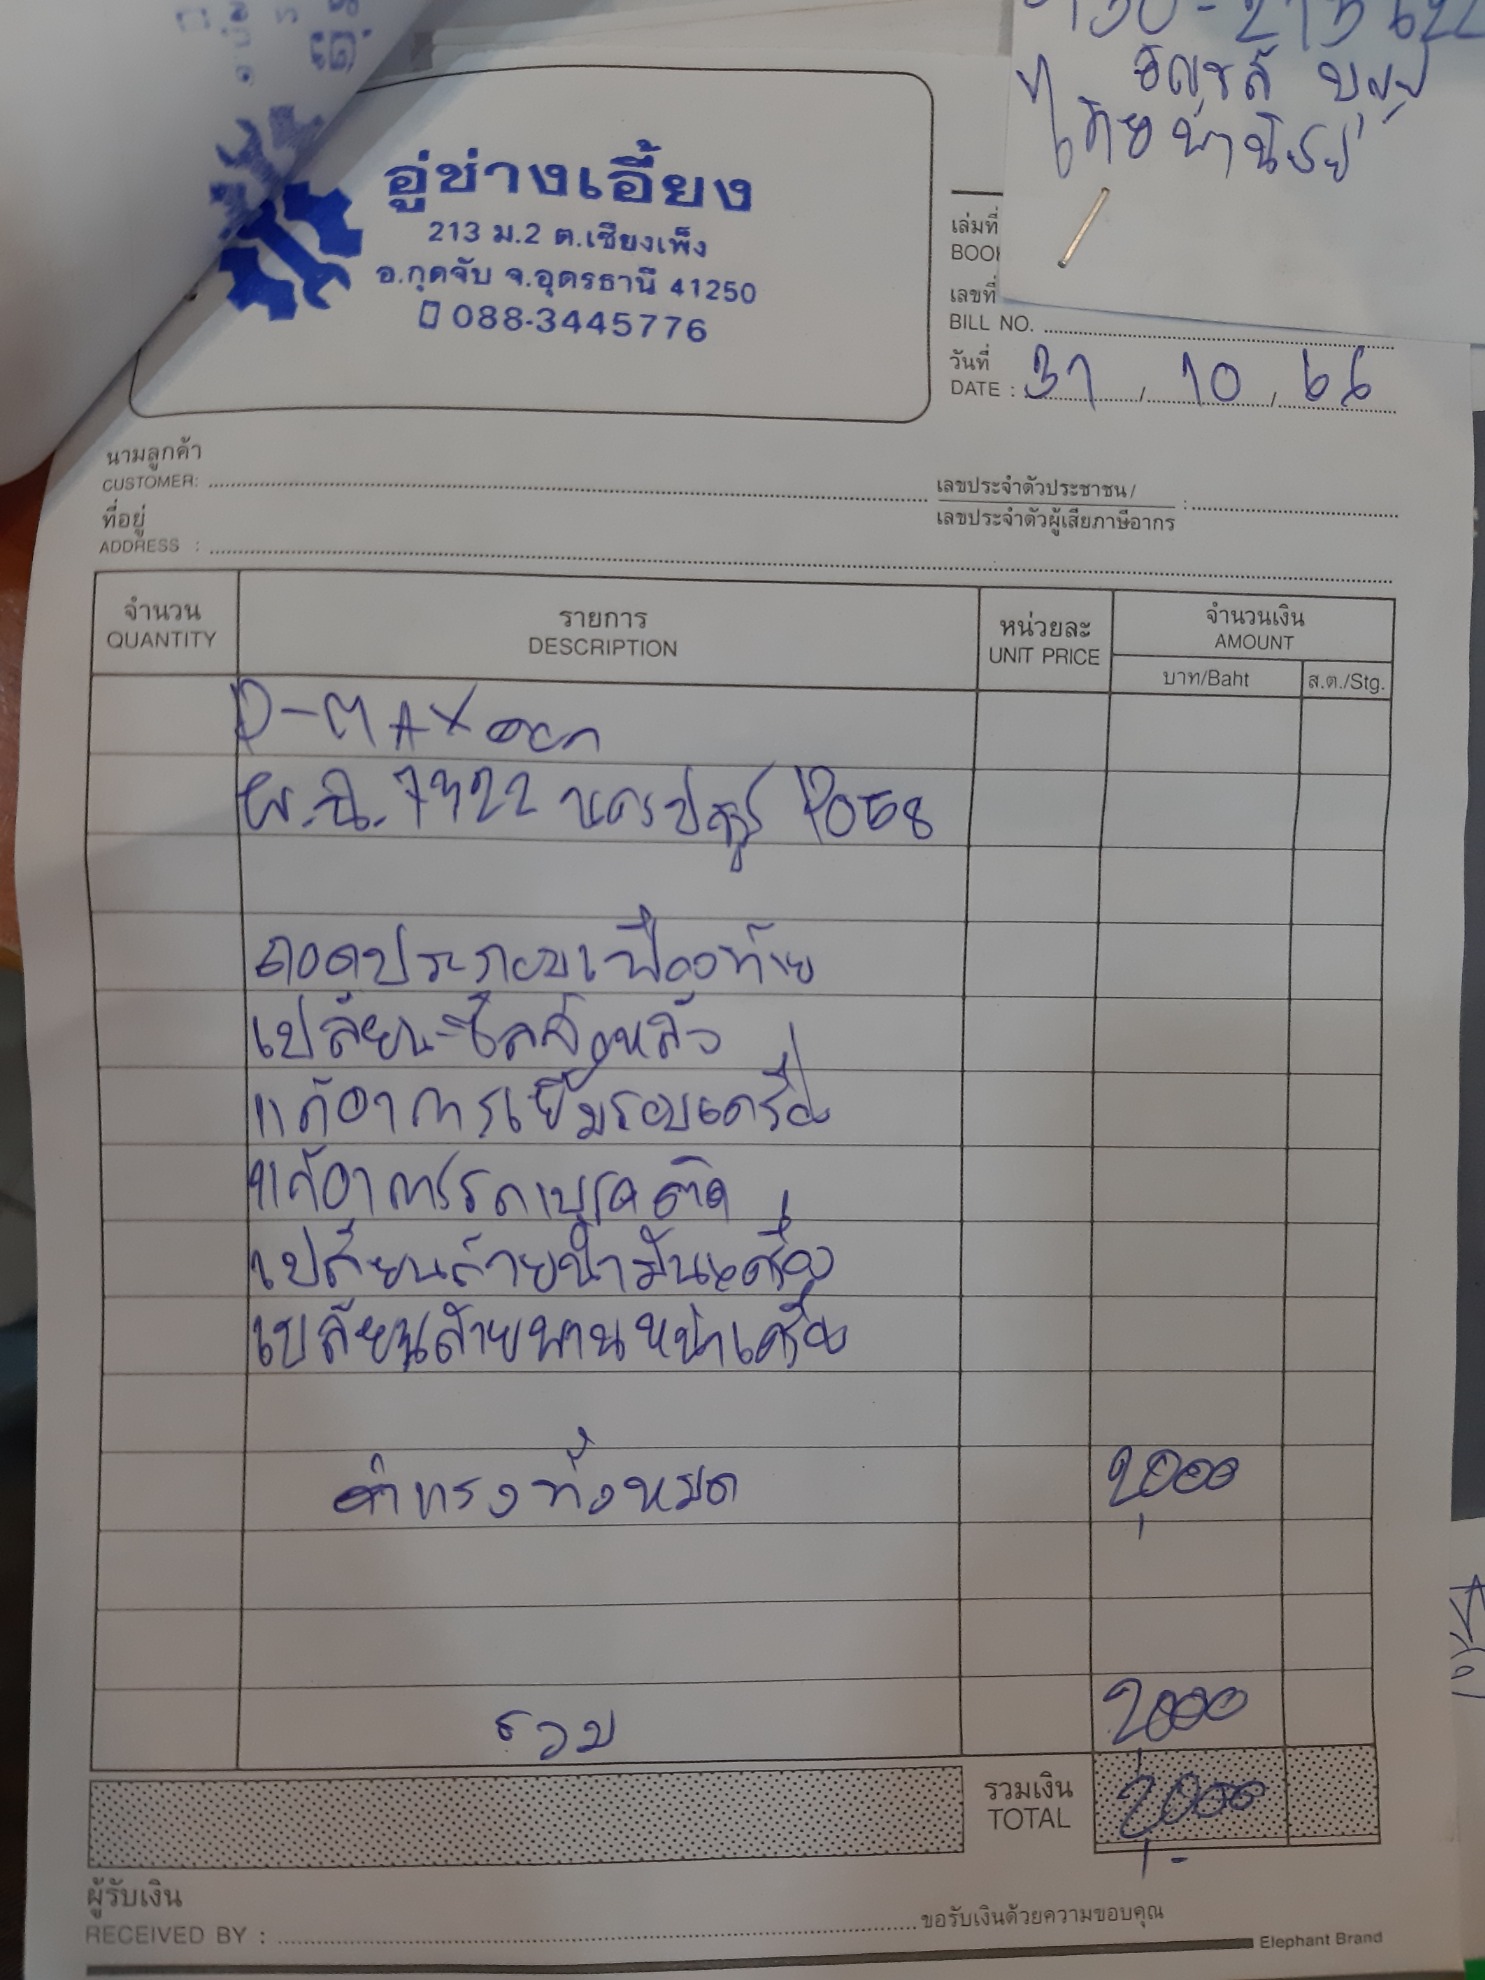 อัญชลี บุญ
ไทยพาณิชย์
อู่ช่างเอี้ยง
213 ม.2 ต.เชียงเพ็ง
อ.กุดจับ จ.อุดรธานี 41250
088-3445776
เล่มที่
BOOK
เลขที่
BILL NO.
วันที่
DATE : 31 / 10 / 66
นามลูกค้า
CUSTOMER:
เลขประจำตัวประชาชน/ :
เลขประจำตัวผู้เสียภาษีอากร
ที่อยู่
ADDRESS :
จำนวน รายการ หน่วยละ จำนวนเงิน
QUANTITY DESCRIPTION UNIT PRICE AMOUNT
บาท/Baht ส.ต./Stg.
D-MAX
ผ.ฉ. 7322
ถอดประกอบเฟืองท้าย
เปลี่ยนซีลล้อหลัง
แก้อาการเยิ้มรอบเครื่อง
แก้อาการรถเบรคติด
เปลี่ยนถ่ายน้ำมันเครื่อง
เปลี่ยนสายพานหน้าเครื่อง
ค่าแรงทั้งหมด 2,000
รวม 2,000
รวมเงิน
TOTAL 2,000 -
ผู้รับเงิน
RECEIVED BY : ขอรับเงินด้วยความขอบคุณ
Elephant Brand